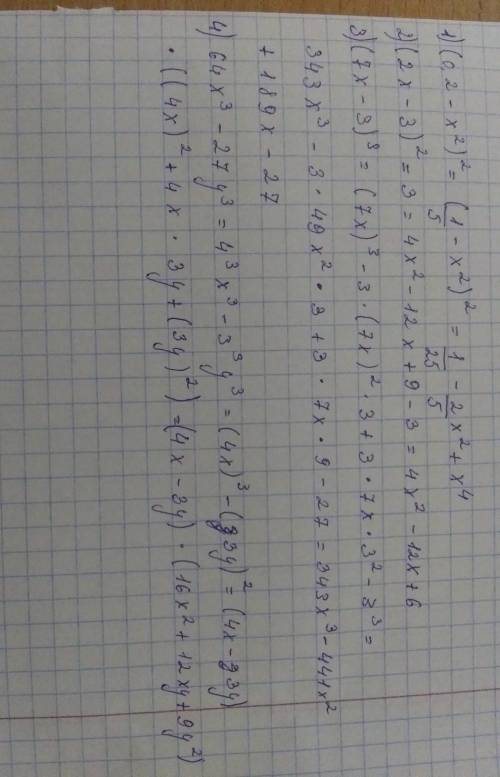 1) (0,2 - x²)² = (1/5 - x²)² = 1/25 - 2/5 x² + x⁴
2) (2x - 3)² = 3 = 4x² - 12x + 9 - 3 = 4x² - 12x + 6
3) (7x - 3)³ = (7x)³ - 3 · (7x)² · 3 + 3 · 7x · 3² - 3³ =
343x³ - 3 · 49x² · 3 + 3 · 7x · 9 - 27 = 343x³ - 441x²
+ 189x - 27
4) 64x³ - 27y³ = 4³x³ - 3³y³ = (4x)³ - (3y)² = (4x - 3y)
· ((4x)² + 4x · 3y + (3y)²) = (4x - 3y) · (16x² + 12xy + 9y²)